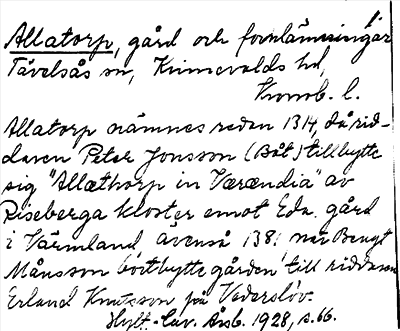 Allatorp, gård och fornlämningar
Tävelsås sn, Kinnevalds hd,
Kronob. l.
Allatorp nämnes redan 1314, då rid-
daren Peter Jonsson (Båt) tillbytte
sig "Allæthorp in Værændia" av
Riseberga kloster emot Eda gård
i Värmland, ävenså 138. när Bengt
Månsson bortbytte gården till riddaren
Erland Knutsson på Vederslöv.
Hylt.-Cav. Årsb. 1928, s. 66.